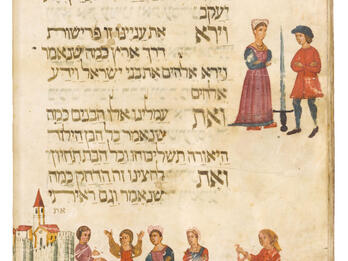 יעקב
וירא את עניינו זו פרישות
דרך ארץ כמה שנאמר
וירא אלהים את בני ישראל וידע
אלהים
ואת עמלינו אלו הבנים כמה
שנאמר כל הבן הילוד
היאורה תשליכוהו וכל הבת תחיון
ואת לחצינו זה הדחק כמה
שנאמר וגם ראיתי
את